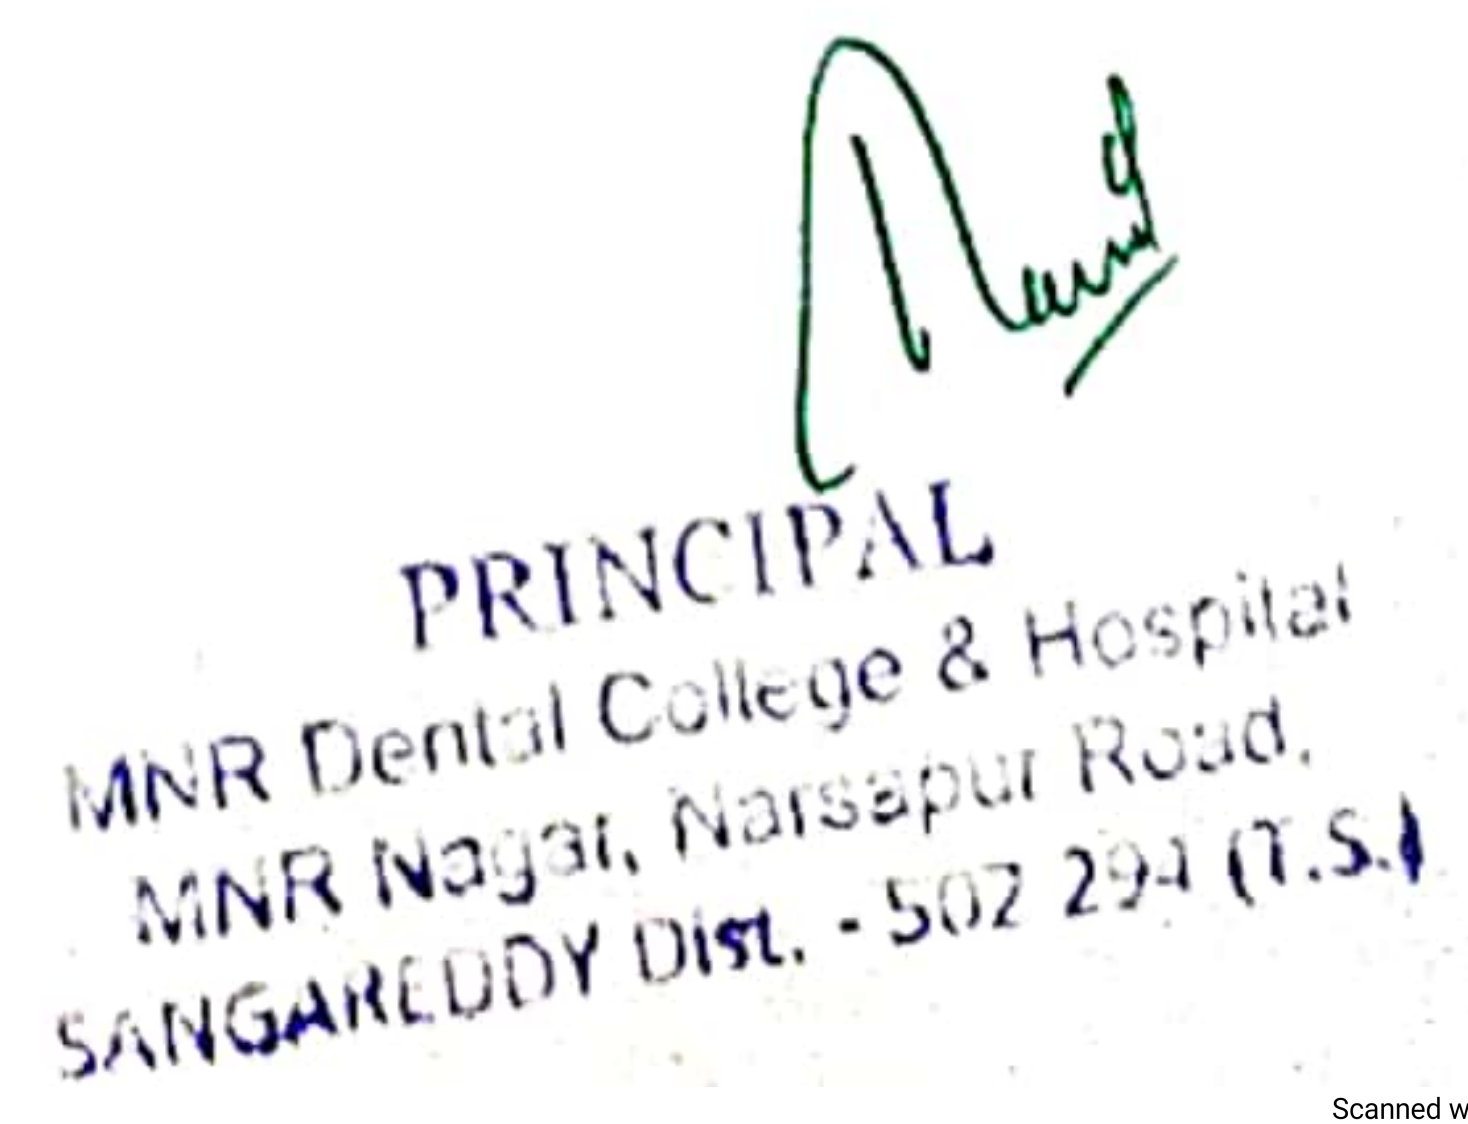 PRINCIPAL
MNR Dental College & Hospital
MNR Nagar, Narsapur Road,
SANGAREDDY Dist. - 502 294 (T.S.)
Scanned w